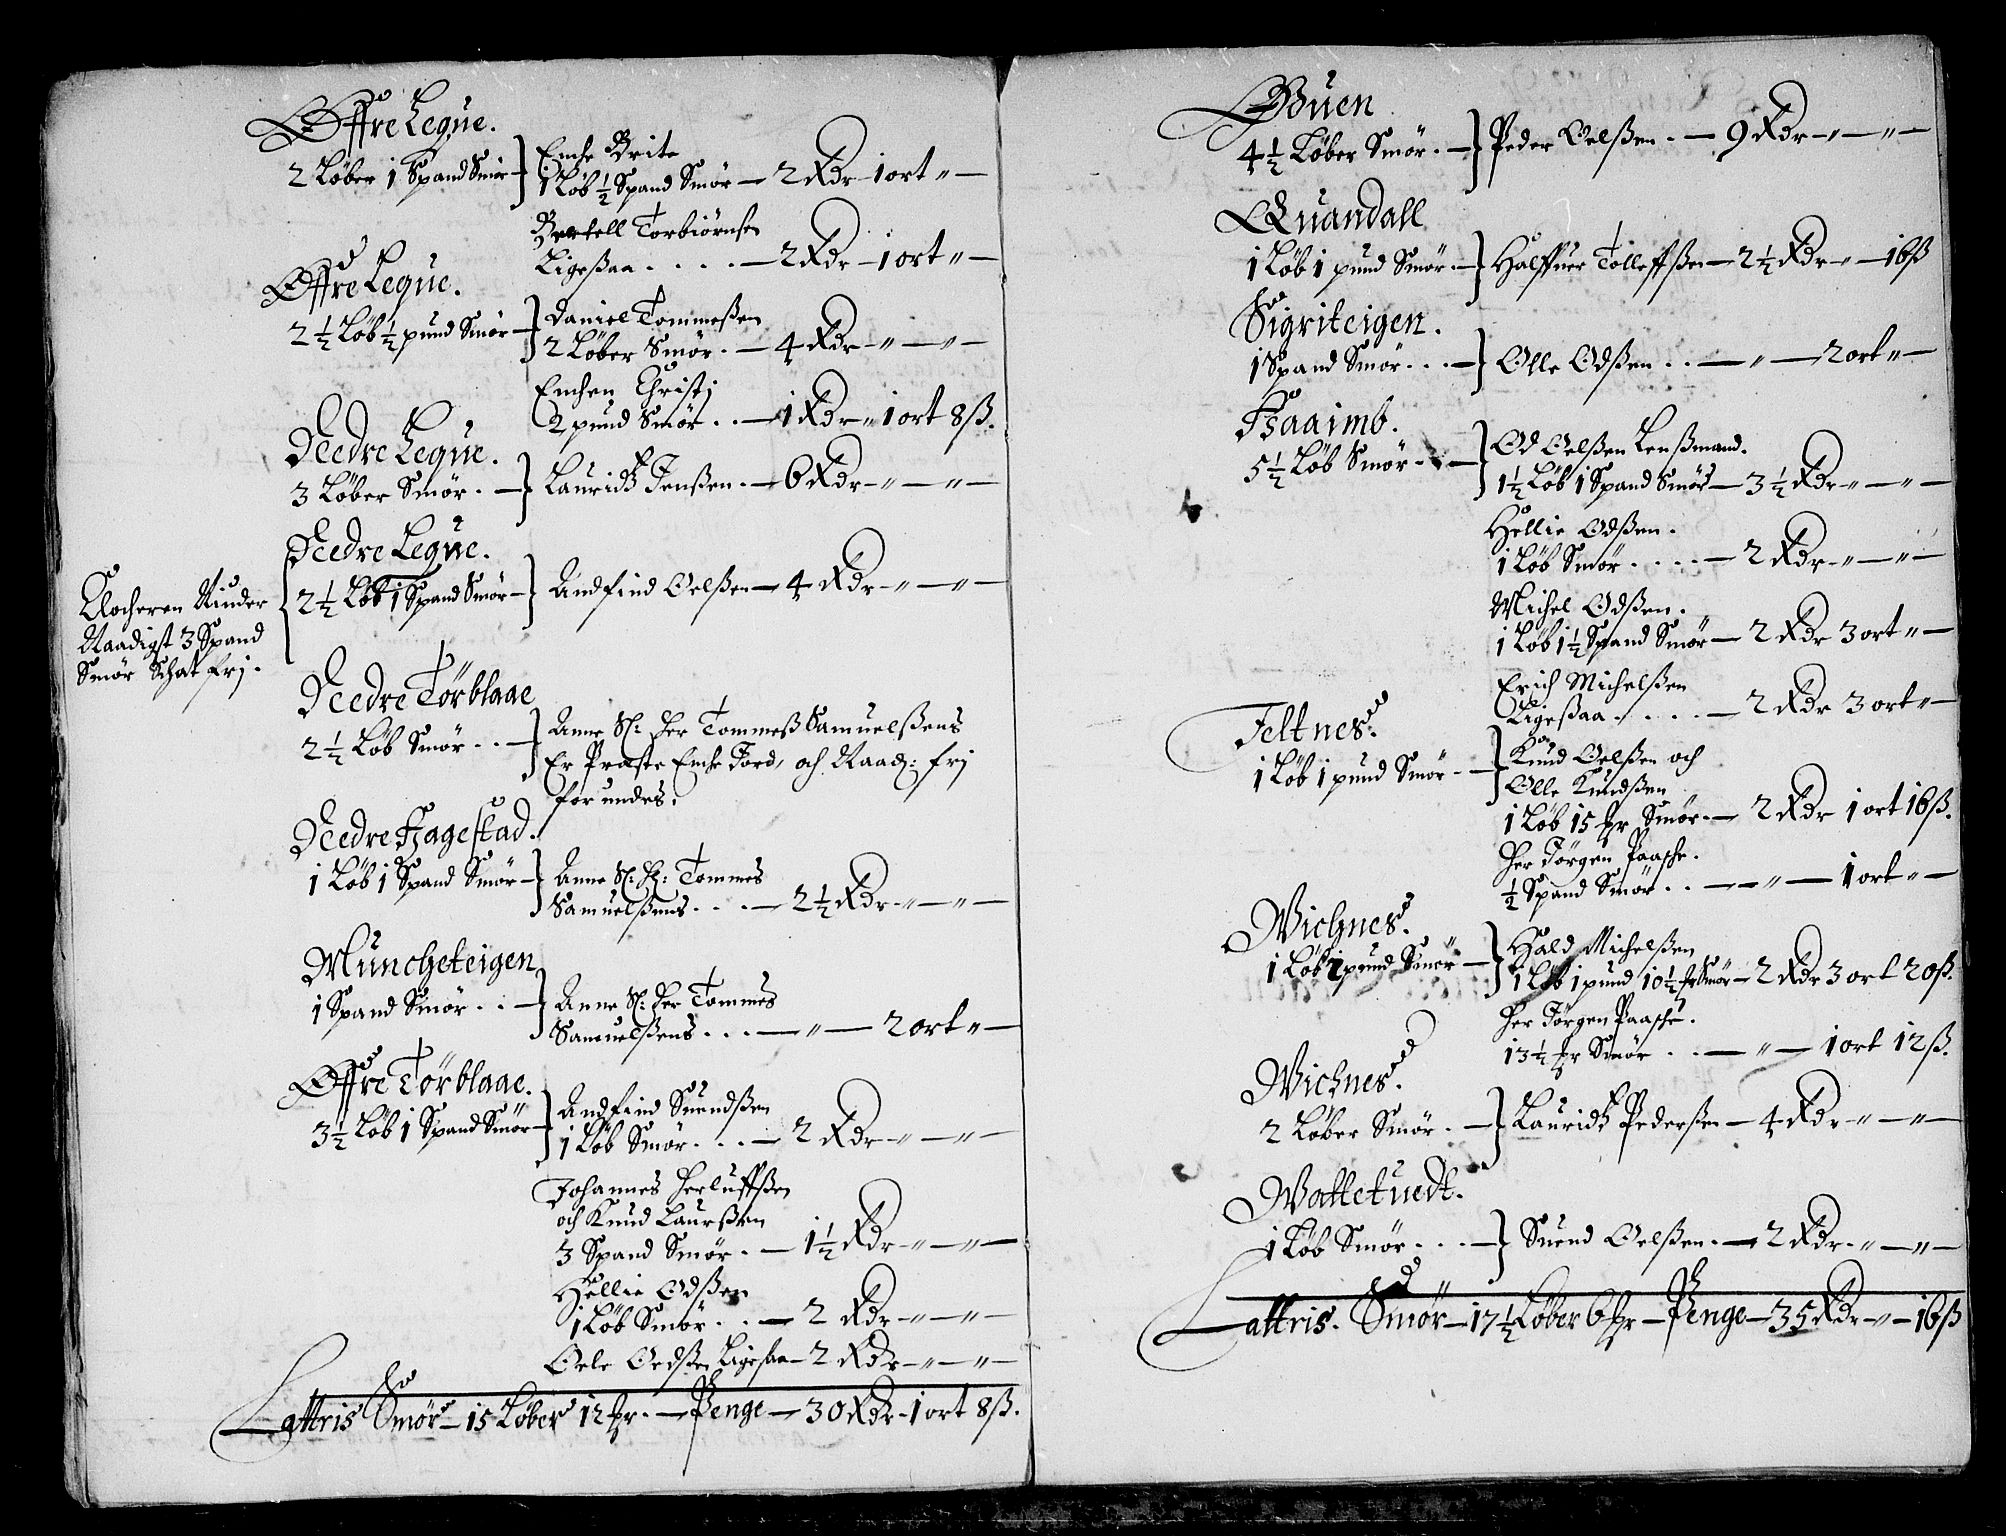 Øffre Leque.
2 Løber 1 Spand Smør
Enche Brite
1 Løb ½ Spand Smør — 2 Rdr — 1 ort " —
Bertell Torbiørnsen
Ligeßaa . . . . — 2 Rdr — 1 ort " —
Øffre Leque.
2½ Løb ½ pund Smør
Daniel Tommeßen
2 Løber Smør . — 4 Rdr — " — " —
Enchen Christj
2 pund Smør . . — 1 Rdr " 1 ort 8 ß.
Nedre Leque.
3 Løber Smør . —
Lauridz Jenßen . — 6 Rdr — " — " —
Nedre Leque.
2½ Løb 1 Spand Smør —
Andfind Oelßen — 4 Rdr — " — " —
Clocheren Niuder
Naadigst 3 Spand
Smør Schat frj .
Nedre Tørblaae
2½ Løb Smør . . —
Anne Sl: Her Tommeß Samuelßens
Er Præste Enche Jord, och Naad: frj
forundes.
Nedre Hagestad.
1 Løb 1 Spand Smør —
Anne Sl: Hr: Tommes
Samuelßens . . . — 2½ Rdr — " — " —
Müncheteigen
1 Spand Smør . . —
Anne Sl: Her Tommes
Samuelßens . . . — " — 2 ort " —
Øffre Tørblaae.
3½ Løb 1 Spand Smør
Andfind Suendßen
1 Løb Smør . . . — 2 Rdr — " — " —
Johannes Herluffßen
och Knud Laurßen
3 Spand Smør . — 1½ Rdr — " — " —
Hellie Odßen
1 Løb Smør . . — 2 Rdr — " — " —
Oele Oedßen Ligesaa — 2 Rdr — " — " —
Lattris Smør — 15 Løber 12 pr. — Penge — 30 Rdr — 1 ort 8 ß.
Buen
4½ Løber Smør . —
Peder Oelßen . — 9 Rdr — " — " —
Quandall
1 Løb 1 pund Smør . —
Halffuer Tolleffßen — 2½ Rdr — " — 16 ß
Sigriteigen.
1 Spand Smør . . . —
Olle Odßen . . — " — 2 ort " —
Haaimb.
5½ Løb Smør . . —
Od Oelßen Lenßmand.
1½ Løb 1 Spand Smør — 3½ Rdr — " — " —
Hellie Odßen.
1 Løb Smør . . . . — 2 Rdr — " — " —
Michel Odßen.
1 Løb 1½ Spand Smør — 2 Rdr 3 ort " —
Erich Michelßen
Ligeßaa . . . . — 2 Rdr 3 ort " —
Jeltnes.
1 Løb 1 pund Smør . —
Knud Oelßen och
Olle Knudßen
1 Løb 15 pr Smør . — 2 Rdr 1 ort 16 ß.
Her Jørgen Paasche.
½ Spand Smør . . — " — 1 ort " —
Wichnes.
1 Løb 2 pund Smør —
Hald Michelßen
1 Løb 1 pund 10½ pr Smør — 2 Rdr 3 ort 20 ß.
Her Jørgen Paasche.
13½ pr Smør . . — " — 1 ort 12 ß.
Wichnes.
2 Løber Smør . —
Lauridz Pederßen — 4 Rdr — " — " —
Wattetuedt.
1 Løb Smør . . . —
Suend Oelßen . — 2 Rdr . " — " —
Lattris. Smør — 17½ Løber 6 pr — Penge — 35 Rdr — " — 16 ß